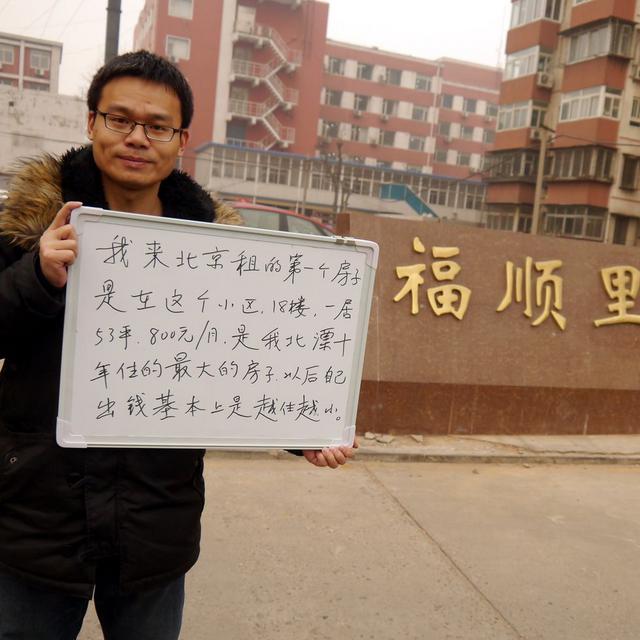 我来北京租的第一个房子
是在这个小区,18楼,一居
53平,800元/月,是我北漂十
年住的最大的房子.以后自己
出钱基本上是越住越小。
福顺里